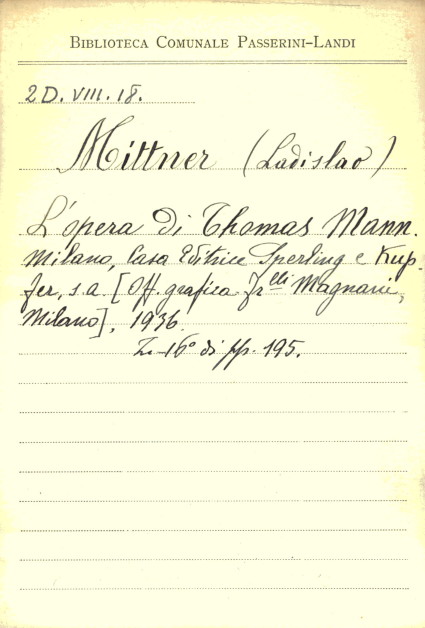 BIBLIOTECA COMUNALE PASSERINI-LANDI
2 D. VIII. 18.
Mittner (Ladislao)
L'opera di Thomas Mann.
Milano, Casa Editrice Sperling e Kup-
fer, s. a. [Off. grafica Fr.lli Magnani,
Milano], 1936.
In-16° di pp. 195.